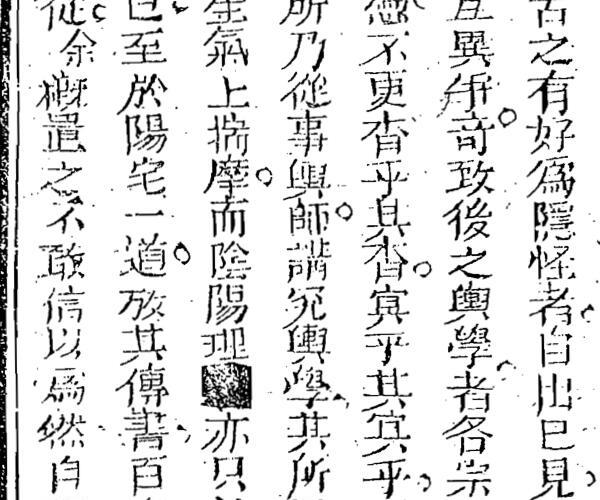 古之有好為隱怪者自出己見
互異爭奇致後之輿學者各崇
不更杳乎其杳寅乎其寅乎
所乃從事輿師講究輿學其所
生氣上揣摩而陰陽理亦只
已至於陽宅一道攷其傳書百
從余概置之不敢信以為然自